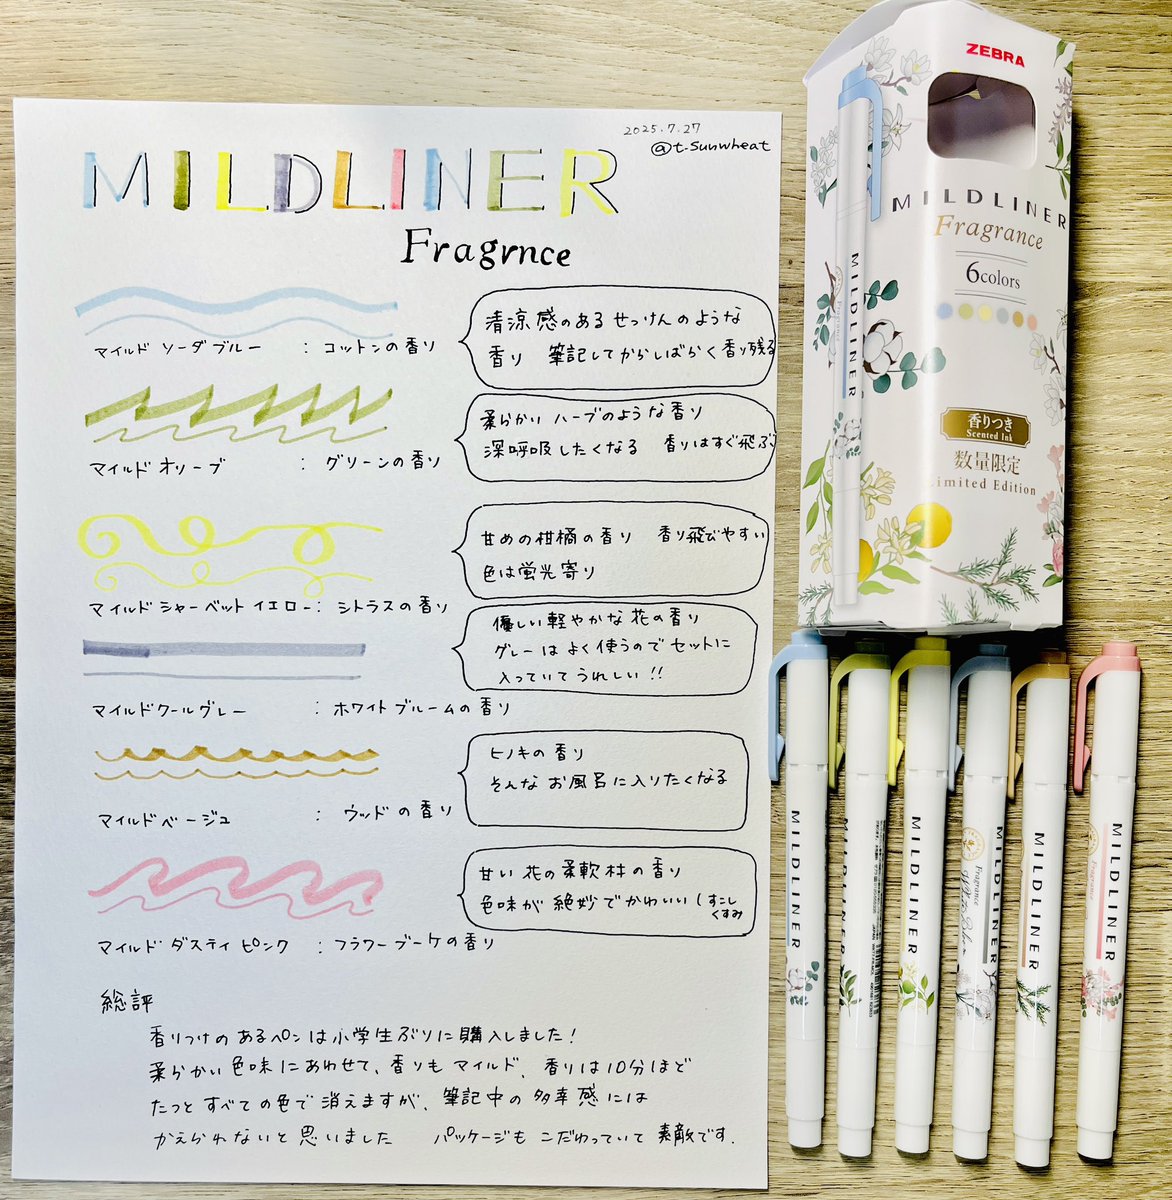 2025.7.27
@t-sunwheat
MILDLINER
Fragrnce
マイルド ソーダブルー : コットンの香り
清涼感のあるせっけんのような
香り 筆記してからしばらく香り残る
マイルド オリーブ : グリーンの香り
柔らかいハーブのような香り
深呼吸したくなる 香りはすぐ飛ぶ
マイルドシャーベットイエロー : シトラスの香り
甘めの柑橘の香り 香り飛びやすい
色は蛍光寄り
マイルドクールグレー : ホワイトブルームの香り
優しい軽やかな花の香り
グレーはよく使うのでセットに
入っていてうれしい!!
マイルドベージュ : ウッドの香り
ヒノキの香り
そんなお風呂に入りたくなる
マイルド ダスティ ピンク : フラワーブーケの香り
甘い花の柔軟材の香り
色味が絶妙でかわいい(すこし
くすみ
総評
香りつけのあるペンは小学生ぶりに購入しました!
柔らかい色味にあわせて、香りもマイルド、香りは10分ほど
たつとすべての色で消えますが、筆記中の多幸感には
かえられないと思いました パッケージもこだわっていて素敵です.
ZEBRA
MILDLINER
Fragrance
6colors
MILDLINER
香りつき
Scented Ink
数量限定
Limited Edition
MILDLINER
MILDLINER
MILDLINER
MILDLINER
Fragrance
White Bloom
MILDLINER
MILDLINER
Fragrance